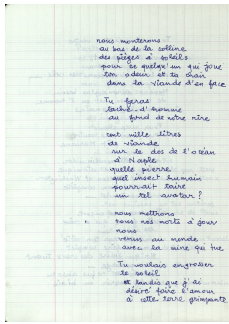 nous monterons
au bas de la colline
des pièges à soleils
pour ce quelqu'un qui joue
ton odeur et ta chair
dans la viande d'en face
Tu feras
tache d'homme
au fond de notre rire
cent mille litres
de viande
sur le dos de l'océan
à Naple
quelle pierre
quel insect humain
pourrait taire
un tel avatar ?
nous mettrons
tous nos morts à jour
nous
venus au monde
avec la mine qui tue
Tu voulais engrosser
le soleil
et tandis que j'ai
désiré faire l'amour
à cette terre grimpante